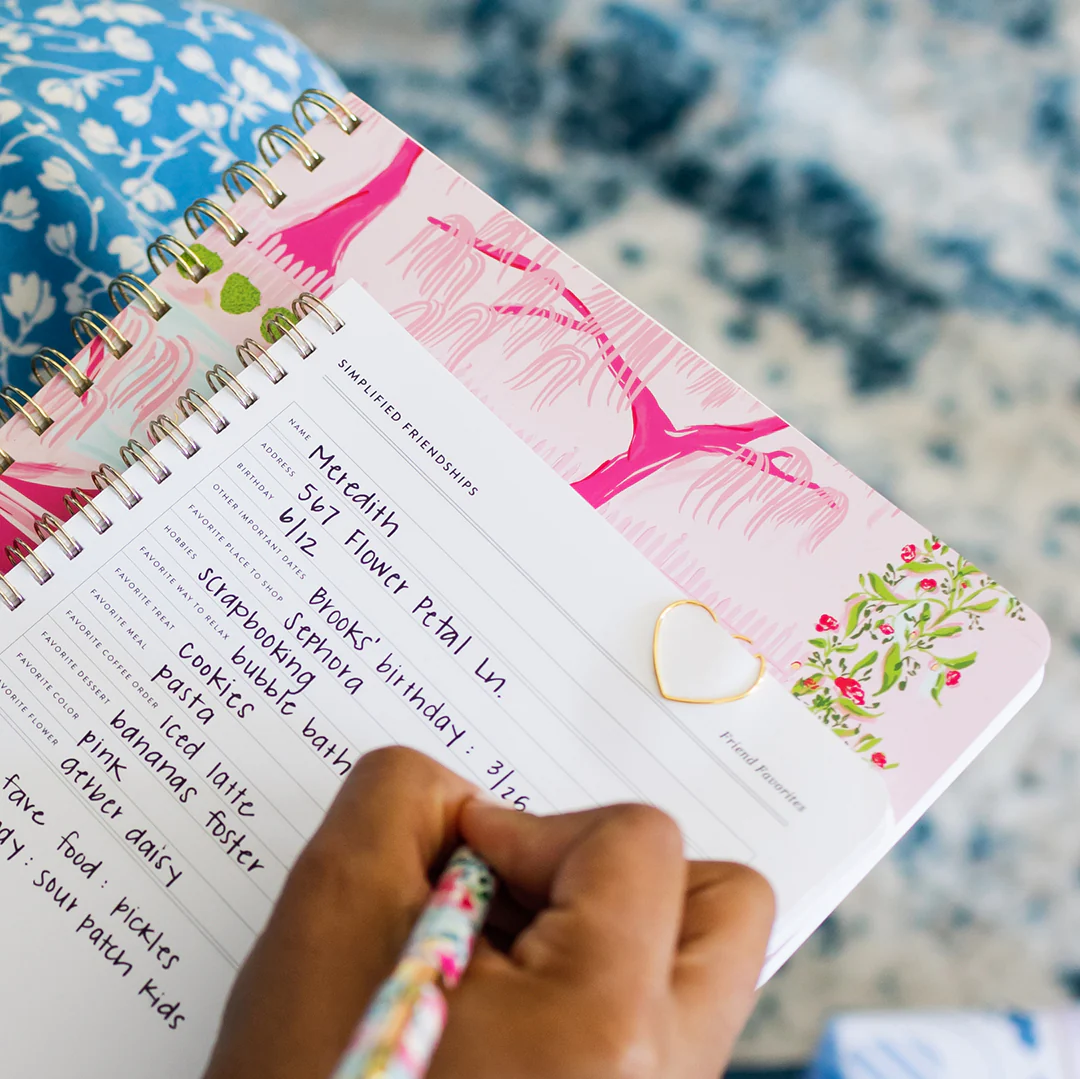 SIMPLIFIED FRIENDSHIPS
Friend Favorites
NAME Meredith
ADDRESS 567 Flower Petal Ln.
BIRTHDAY 6/12
OTHER IMPORTANT DATES Brooks' birthday:
FAVORITE PLACE TO SHOP Sephora
HOBBIES scrapbooking
FAVORITE WAY TO RELAX bubble bath
FAVORITE TREAT cookies
FAVORITE MEAL pasta
FAVORITE COFFEE ORDER iced latte
FAVORITE DESSERT bananas foster
FAVORITE COLOR pink
FAVORITE FLOWER gerber daisy
fave food: pickles
sour patch kids